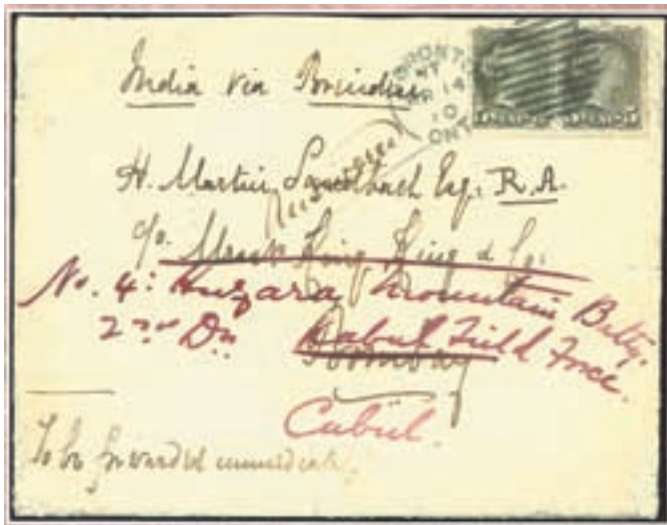 India via Brindisi
TORONTO
14
ONT
H. Martin Sandbach Esq. R.A.
c/o. King King & Co.
No. 4: Huzara Mountain Batty.
2nd Dn. Kabul Field Force.
Bombay
Cubul.
To be forwarded immediately